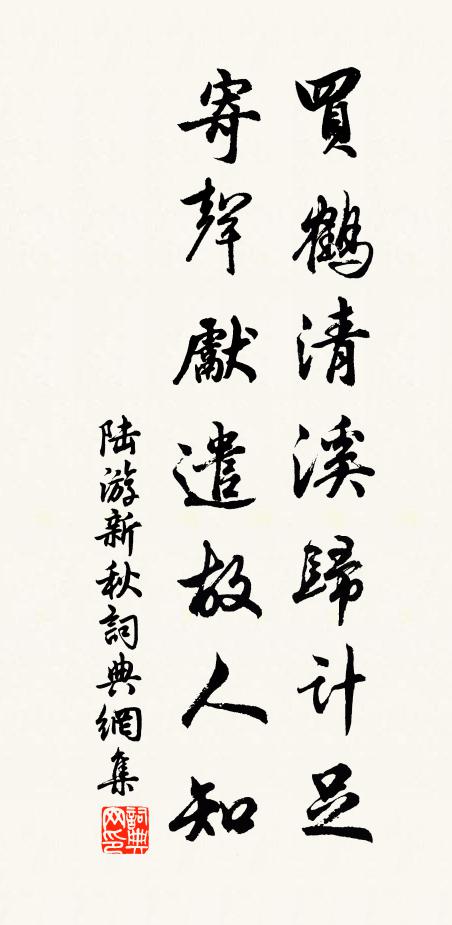 買鶴清溪歸計足
寄聲獻遣故人知
陆游新秋詞典網集
詞典网印